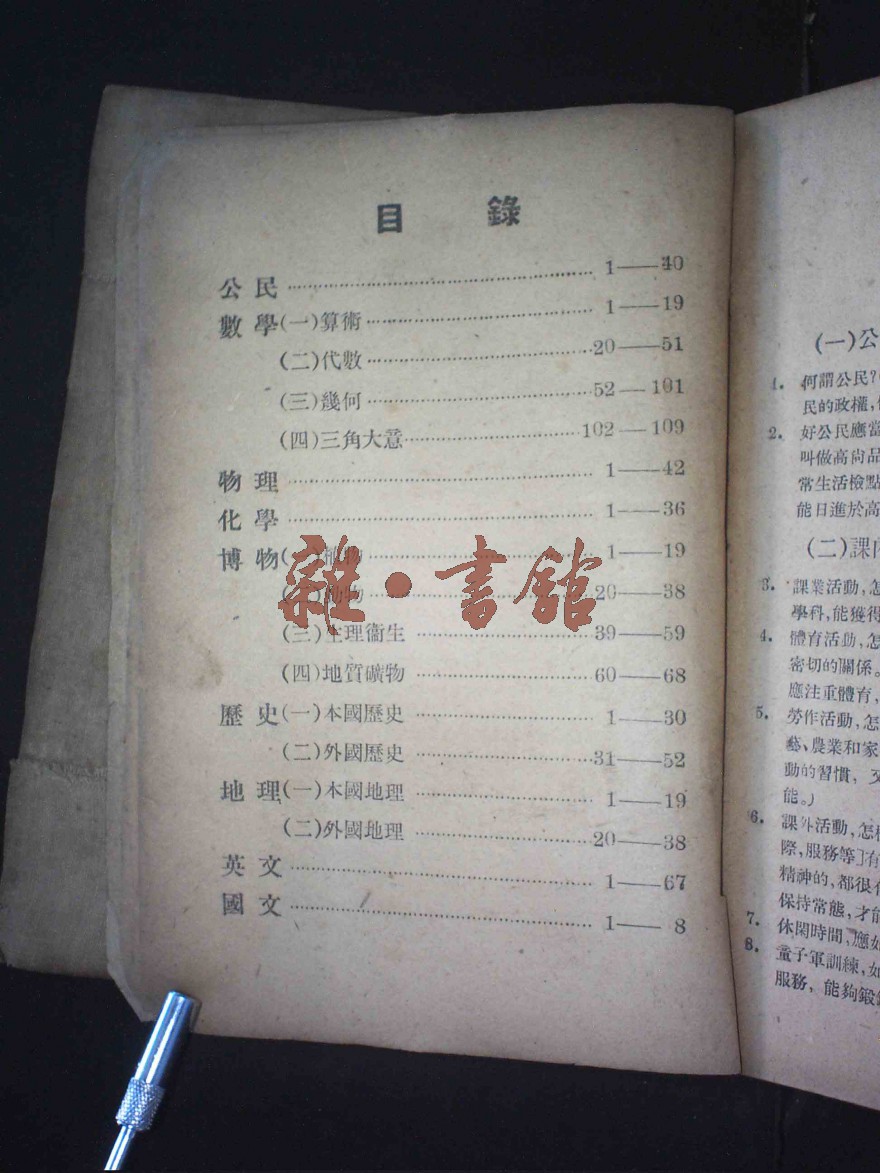 目 錄
公民 1——40
數學(一)算術 1——19
(二)代數 20——51
(三)幾何 52——101
(四)三角大意 102——109
物理 1——42
化學 1——36
博物(一)植物 1——19
(二)動物 20——38
(三)生理衞生 39——59
(四)地質礦物 60——68
歷史(一)本國歷史 1——30
(二)外國歷史 31——52
地理(一)本國地理 1——19
(二)外國地理 20——38
英文 1——67
國文 1——8
雜·書館
(一)公
1. 何謂公民?
民的政權,
2. 好公民應當
叫做高尙品
常生活檢點
能日進於高
(二)課內
3. 課業活動,怎
學科,能獲得
4. 體育活動,怎
密切的關係。
應注重體育,
5. 勞作活動,怎
藝、農業和家
動的習慣,
能。)
6. 課外活動,怎樣
際,服務等]有
精神的,都很有
保持常態,才能
7. 休閑時間,應如
8. 童子軍訓練,如
服務,能夠鍛鍊